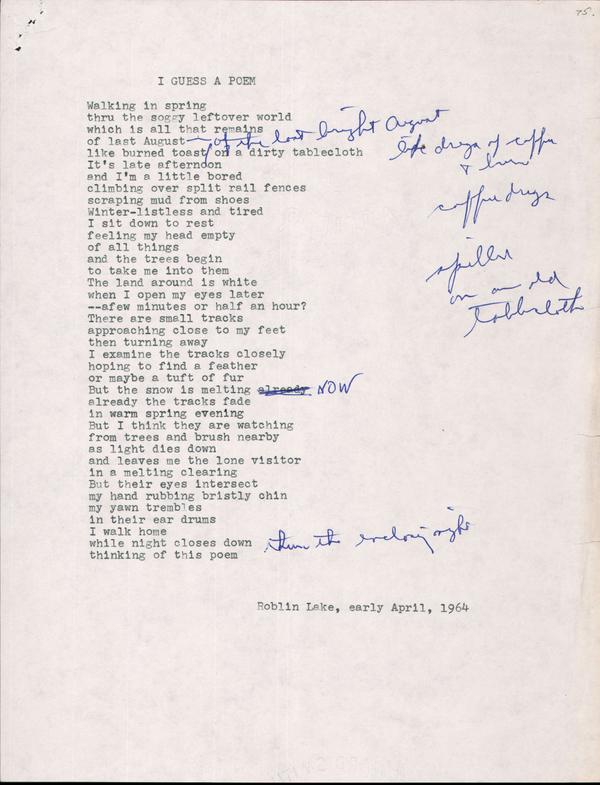 75.
I GUESS A POEM
Walking in spring
thru the soggy leftover world
which is all that remains
of last August of the last bright August
like burned toast on a dirty tablecloth
like dregs of coffee
&
coffee dregs
spilled
on an old
tablecloth
It's late afternoon
and I'm a little bored
climbing over split rail fences
scraping mud from shoes
Winter-listless and tired
I sit down to rest
feeling my head empty
of all things
and the trees begin
to take me into them
The land around is white
when I open my eyes later
--afew minutes or half an hour?
There are small tracks
approaching close to my feet
then turning away
I examine the tracks closely
hoping to find a feather
or maybe a tuft of fur
But the snow is melting already NOW
already the tracks fade
in warm spring evening
But I think they are watching
from trees and brush nearby
as light dies down
and leaves me the lone visitor
in a melting clearing
But their eyes intersect
my hand rubbing bristly chin
my yawn trembles
in their ear drums
I walk home
while night closes down thru the enclosing night
thinking of this poem
Roblin Lake, early April, 1964